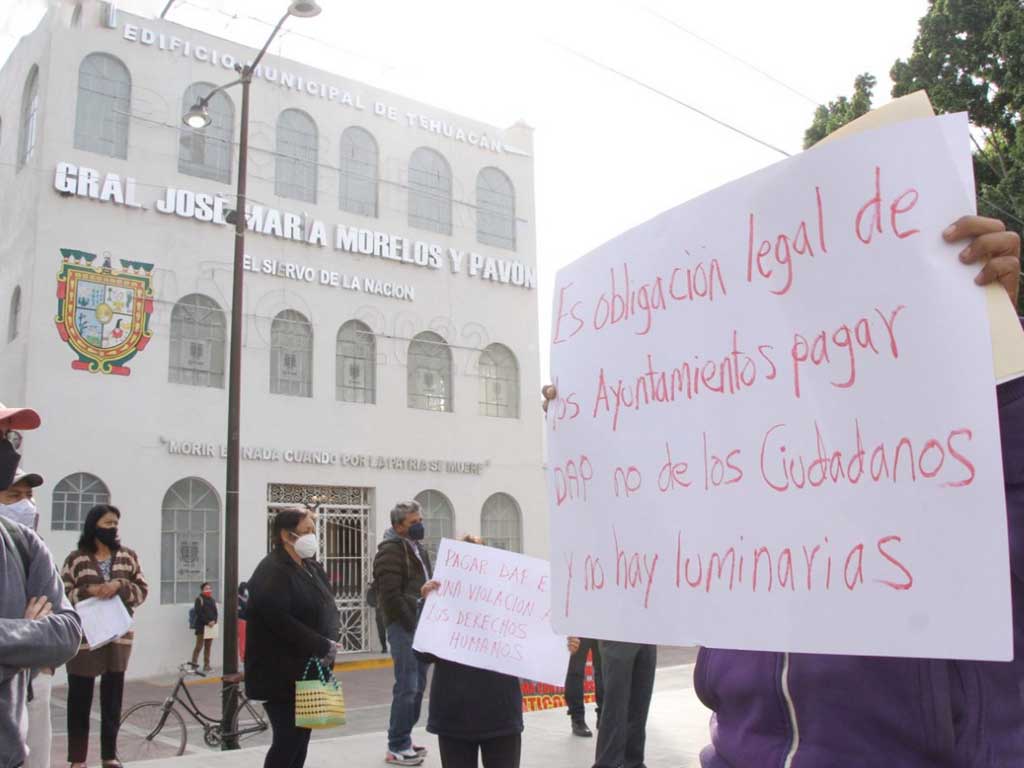 EDIFICIO MUNICIPAL DE TEHUACÁN
GRAL. JOSÉ MARÍA MORELOS Y PAVÓN
EL SIERVO DE LA NACION
"MORIR ES NADA CUANDO POR LA PATRIA SE MUERE"
Es obligación legal de
los Ayuntamientos pagar
DAP no de los Ciudadanos
y no hay luminarias
PAGAR DAP E
UNA VIOLACION A
LOS DERECHOS
HUMANOS